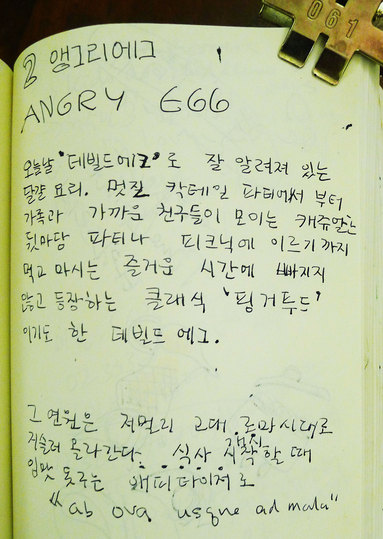 061
2 앵그리에그
ANGRY EGG
오늘날 '데빌드에그'로 잘 알려져 있는
달걀 요리. 멋진 칵테일 파티에서부터
가족과 가까운 친구들이 모이는 캐쥬얼한
뒷마당 파티나 피크닉에 이르기까지
먹고 마시는 즐거운 시간에 빠지지
않고 등장하는 클래식 '핑거푸드'
이기도 한 데빌드 에그.
그 연원은 저멀리 고대 로마시대로
거슬러 올라간다. 식사 시작할 때
입맛 돗구는 애피타이저로
"ab ova usque ad mala"